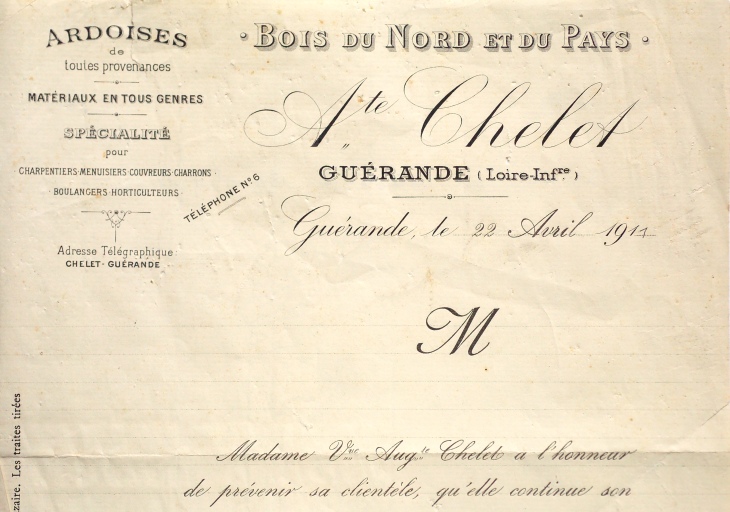 ARDOISES
de
toutes provenances
MATÉRIAUX EN TOUS GENRES
SPÉCIALITÉ
pour
CHARPENTIERS·MENUISIERS·COUVREURS·CHARRONS·
·BOULANGERS·HORTICULTEURS·
Adresse Télégraphique
CHELET-GUÉRANDE
TÉLÉPHONE N° 6
· BOIS DU NORD ET DU PAYS ·
Ate Chelet
GUÉRANDE (Loire-Infre)
Guérande, le 22 Avril 1911
M
Madame Vve Augte Chelet a l'honneur
de prévenir sa clientèle, qu'elle continue son
zaire. Les traites tirées